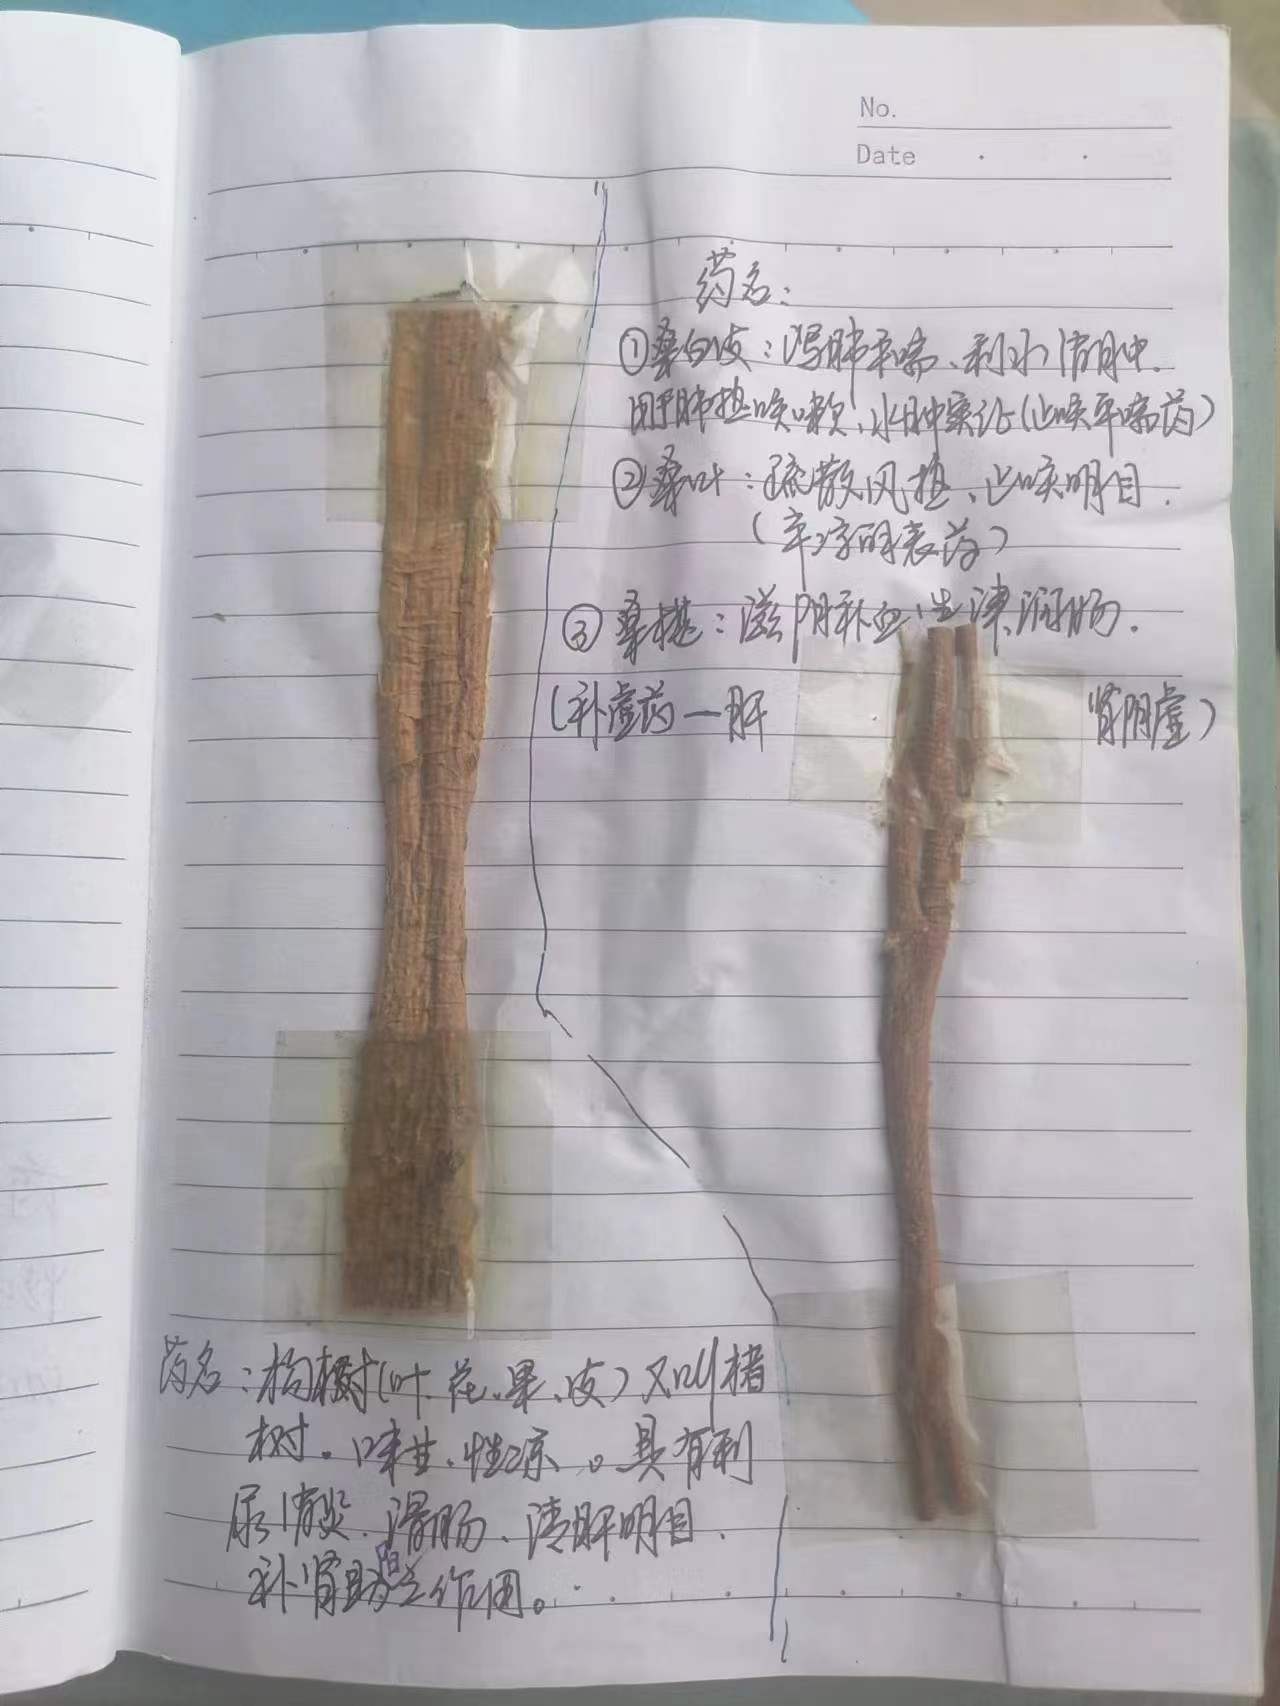 No.
Date
药名：
①桑白皮：泻肺平喘、利水消肿.
用于肺热咳嗽、水肿实证(止咳平喘药)
②桑叶：疏散风热、止咳明目.
(辛凉解表药)
③桑椹：滋阴补血、生津润肠.
(补虚药)—肝 肾阴虚)
药名：构树(叶、花、果、皮)又叫楮
树。味甘、性凉。具有利
尿消炎、滑肠、清肝明目.
补肾助阳之作用。